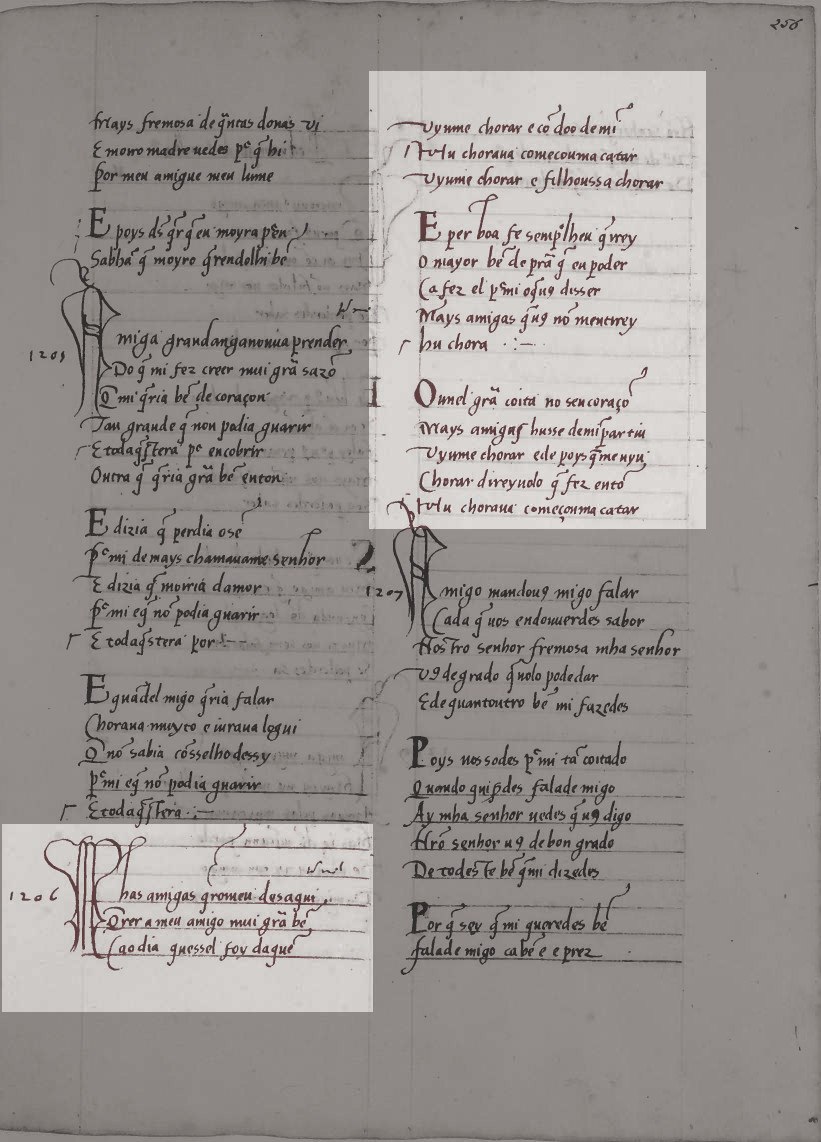 256
Mays fremosa de q̃ntas donas vi
E moiro madre uedes pᵉ q̃ hi
Por meu amigue meu lume
E poys ds̃ q̃r q̃ eu moyra pᵉ en
Sabhã q̃ moyro q̃rendolhi bẽ
1205
Amiga grandanganonuia prender
Do q̃ mi fez creer mui grã sazõ
Q̃ mi q̃ria bẽ de coraçon
Tan grande q̃ non podia guarir
E todaq̃stera pᵉ encobrir
Outra q̃ q̃ria grã bẽ enton
E dizia q̃ perdia o sẽ
pᵉ mi demays chamauame senhor
E dizia q̃ moiria damor
pᵉ mi eq̃ nõ podia guarir
E todaq̃stera por
E guãdel migo q̃ria falar
Choraua muyto e iuraua logui
Q̃ nõ sabia cõsselho dessy
pᵉ mi eq̃ nõ podia guarir
E todaq̃stera
1206
Mhas amigas q̃romeu desaqui
Q̃rer a meu amigo mui grã bẽ
Ca o dia quessel foy daquẽ
Vyume chorar e cõ doo de mi
Hu choraua começouma catar
Vyume chorar e filhoussa chorar
E per boa fe semp̃lheu q̃rrey
O mayor bẽ de prã q̃ eu poder
Ca fez el pᵉ mi o q̃uꝯ disser
Mays amigas q̃uꝯ nõ mentirrey
hu chora
Ouuel grã coita no seu coraçõ
Mays amigas husse demi partiu
Vyume chorar e de poys q̃me uyu
Chorar direyuolo q̃ fez entõ
Hu choraua começouma catar
1207
Amigo mandouꝯ migo falar
Cada q̃ uos endouuerdes sabor
Nostro senhor fremosa mha senhor
Uꝯ de grado q̃uolo podedar
E de quantoutro bẽ mi fazedes
Poys uos sodes pᵉ mi tã coitado
Quando quis̃des falade migo
Ay mha senhor uedes q̃ uꝯ digo
Nr̃o senhor uꝯ de bon grado
De todeste bẽ q̃mi dizedes
Por q̃ sey q̃ mi queredes bẽ
falade migo ca bẽ e e prez